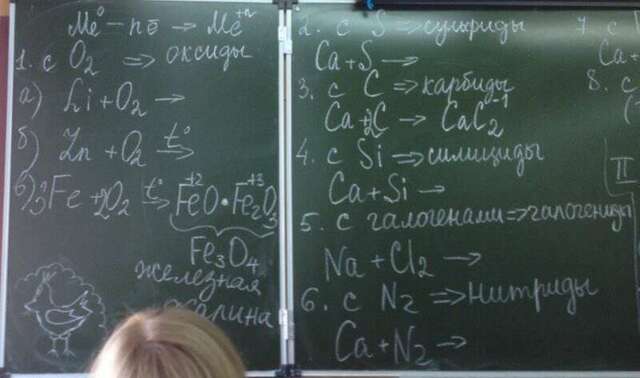 Me⁰ – nē → Me⁺ⁿ
1. с O₂ ⇒ оксиды
а) Li + O₂ →
б) Zn + O₂ t°→
в) 3Fe + 2O₂ t°→ FeO · Fe₂O₃
+2 +3
Fe₃O₄
железная
окалина
2. с S ⇒ сульфиды
Ca + S →
3. с C ⇒ карбиды
Ca + 2C → CaC₂⁻¹
4. с Si ⇒ силициды
Ca + Si →
5. с галогенами ⇒ галогениды
Na + Cl₂ →
6. с N₂ ⇒ Нитриды
Ca + N₂ →
7. с
Ca +
8. с
II